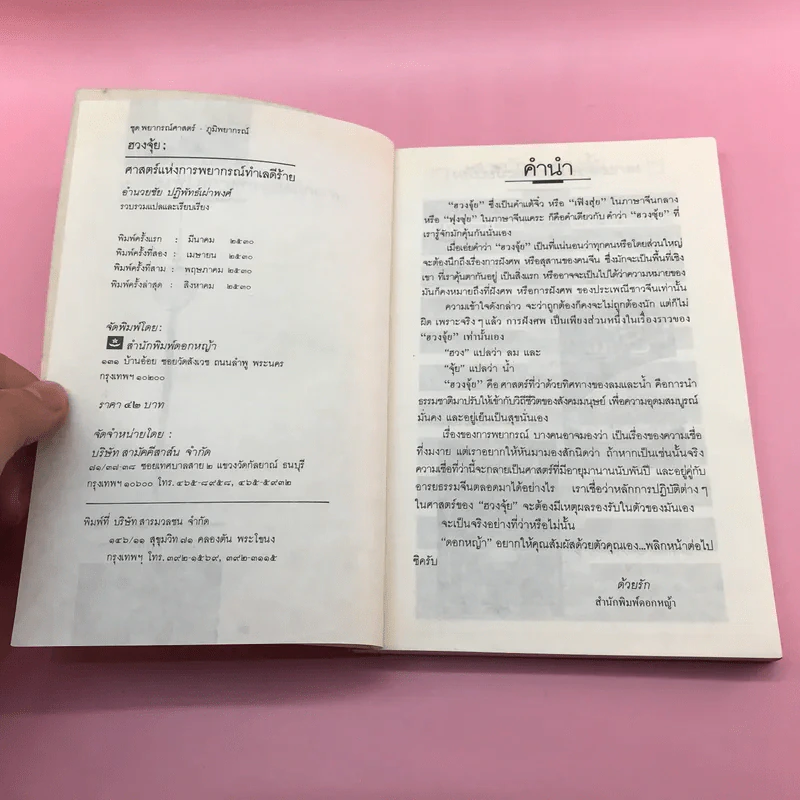 ชุด พยากรณ์ศาสตร์ - ภูมิพยากรณ์
ฮวงจุ้ย :
ศาสตร์แห่งการพยากรณ์ทำเลดีร้าย
อำนวยชัย ปฏิพัทธ์เผ่าพงศ์
รวบรวมแปลและเรียบเรียง
พิมพ์ครั้งแรก : มีนาคม ๒๕๓๐
พิมพ์ครั้งที่สอง : เมษายน ๒๕๓๐
พิมพ์ครั้งที่สาม : พฤษภาคม ๒๕๓๐
พิมพ์ครั้งล่าสุด : สิงหาคม ๒๕๓๐
จัดพิมพ์โดย :
สำนักพิมพ์ดอกหญ้า
๑๓๑ บ้านอ้อย ซอยวัดสังเวช ถนนลำพู พระนคร
กรุงเทพฯ ๑๐๒๐๐
ราคา ๔๒ บาท
จัดจำหน่ายโดย :
บริษัท สามัคคีสาส์น จำกัด
๗๑/๓๗-๓๘ ซอยเทศบาลสาย ๒ แขวงวัดกัลยาณ์ ธนบุรี
กรุงเทพฯ ๑๐๖๐๐ โทร. ๔๖๕-๘๙๕๘, ๔๖๕-๕๙๓๒
พิมพ์ที่ บริษัท สารมวลชน จำกัด
๑๔๖/๑๑ สุขุมวิท ๗๑ คลองตัน พระโขนง
กรุงเทพฯ โทร. ๓๙๒-๑๕๖๙, ๓๙๒-๓๑๑๕
คำนำ
“ฮวงจุ้ย” ซึ่งเป็นคำแต้จิ๋ว หรือ “เฟิงสุ่ย” ในภาษาจีนกลาง
หรือ “ฟุงซุ่ย” ในภาษาจีนแคระ ก็คือคำเดียวกับ คำว่า “ฮวงจุ้ย” ที่
เรารู้จักมักคุ้นกันนั่นเอง
เมื่อเอ่ยคำว่า “ฮวงจุ้ย” เป็นที่แน่นอนว่าทุกคนหรือโดยส่วนใหญ่
จะต้องนึกถึงเรื่องการฝังศพ หรือสุสานของคนจีน ซึ่งมักจะเป็นพื้นที่เชิง
เขา ที่เราคุ้นตากันอยู่ เป็นสิ่งแรก หรืออาจจะเป็นไปได้ว่าความหมายของ
มันก็คงหมายถึงที่ฝังศพ หรือการฝังศพ ของประเพณีชาวจีนเท่านั้น
ความเข้าใจดังกล่าว จะว่าถูกต้องก็คงจะไม่ถูกต้องนัก แต่ก็ไม่
ผิด เพราะจริง ๆ แล้ว การฝังศพ เป็นเพียงส่วนหนึ่งในเรื่องราวของ
“ฮวงจุ้ย” เท่านั้นเอง
“ฮวง” แปลว่า ลม และ
“จุ้ย” แปลว่า น้ำ
“ฮวงจุ้ย” คือ ศาสตร์ที่ว่าด้วยทิศทางของลมและน้ำ คือการนำ
ธรรมชาติมาปรับให้เข้ากับวิถีชีวิตของสังคมมนุษย์ เพื่อความอุดมสมบูรณ์
มั่นคง และอยู่เย็นเป็นสุขนั่นเอง
เรื่องของการพยากรณ์ บางคนอาจมองว่า เป็นเรื่องของความเชื่อ
ที่งมงาย แต่เราอยากให้หันมามองสักนิดว่า ถ้าหากเป็นเช่นนั้นจริง
ความเชื่อที่ว่านี้จะกลายเป็นศาสตร์ที่มีอายุมานานนับพันปี และอยู่คู่กับ
อารยธรรมจีนตลอดมาได้อย่างไร เราเชื่อว่าหลักการปฏิบัติต่าง ๆ
ในศาสตร์ของ “ฮวงจุ้ย” จะต้องมีเหตุผลรองรับในตัวของมันเอง
จะเป็นจริงอย่างที่ว่าหรือไม่นั้น
“ดอกหญ้า” อยากให้คุณสัมผัสด้วยตัวคุณเอง...พลิกหน้าต่อไป
ซิครับ
ด้วยรัก
สำนักพิมพ์ดอกหญ้า